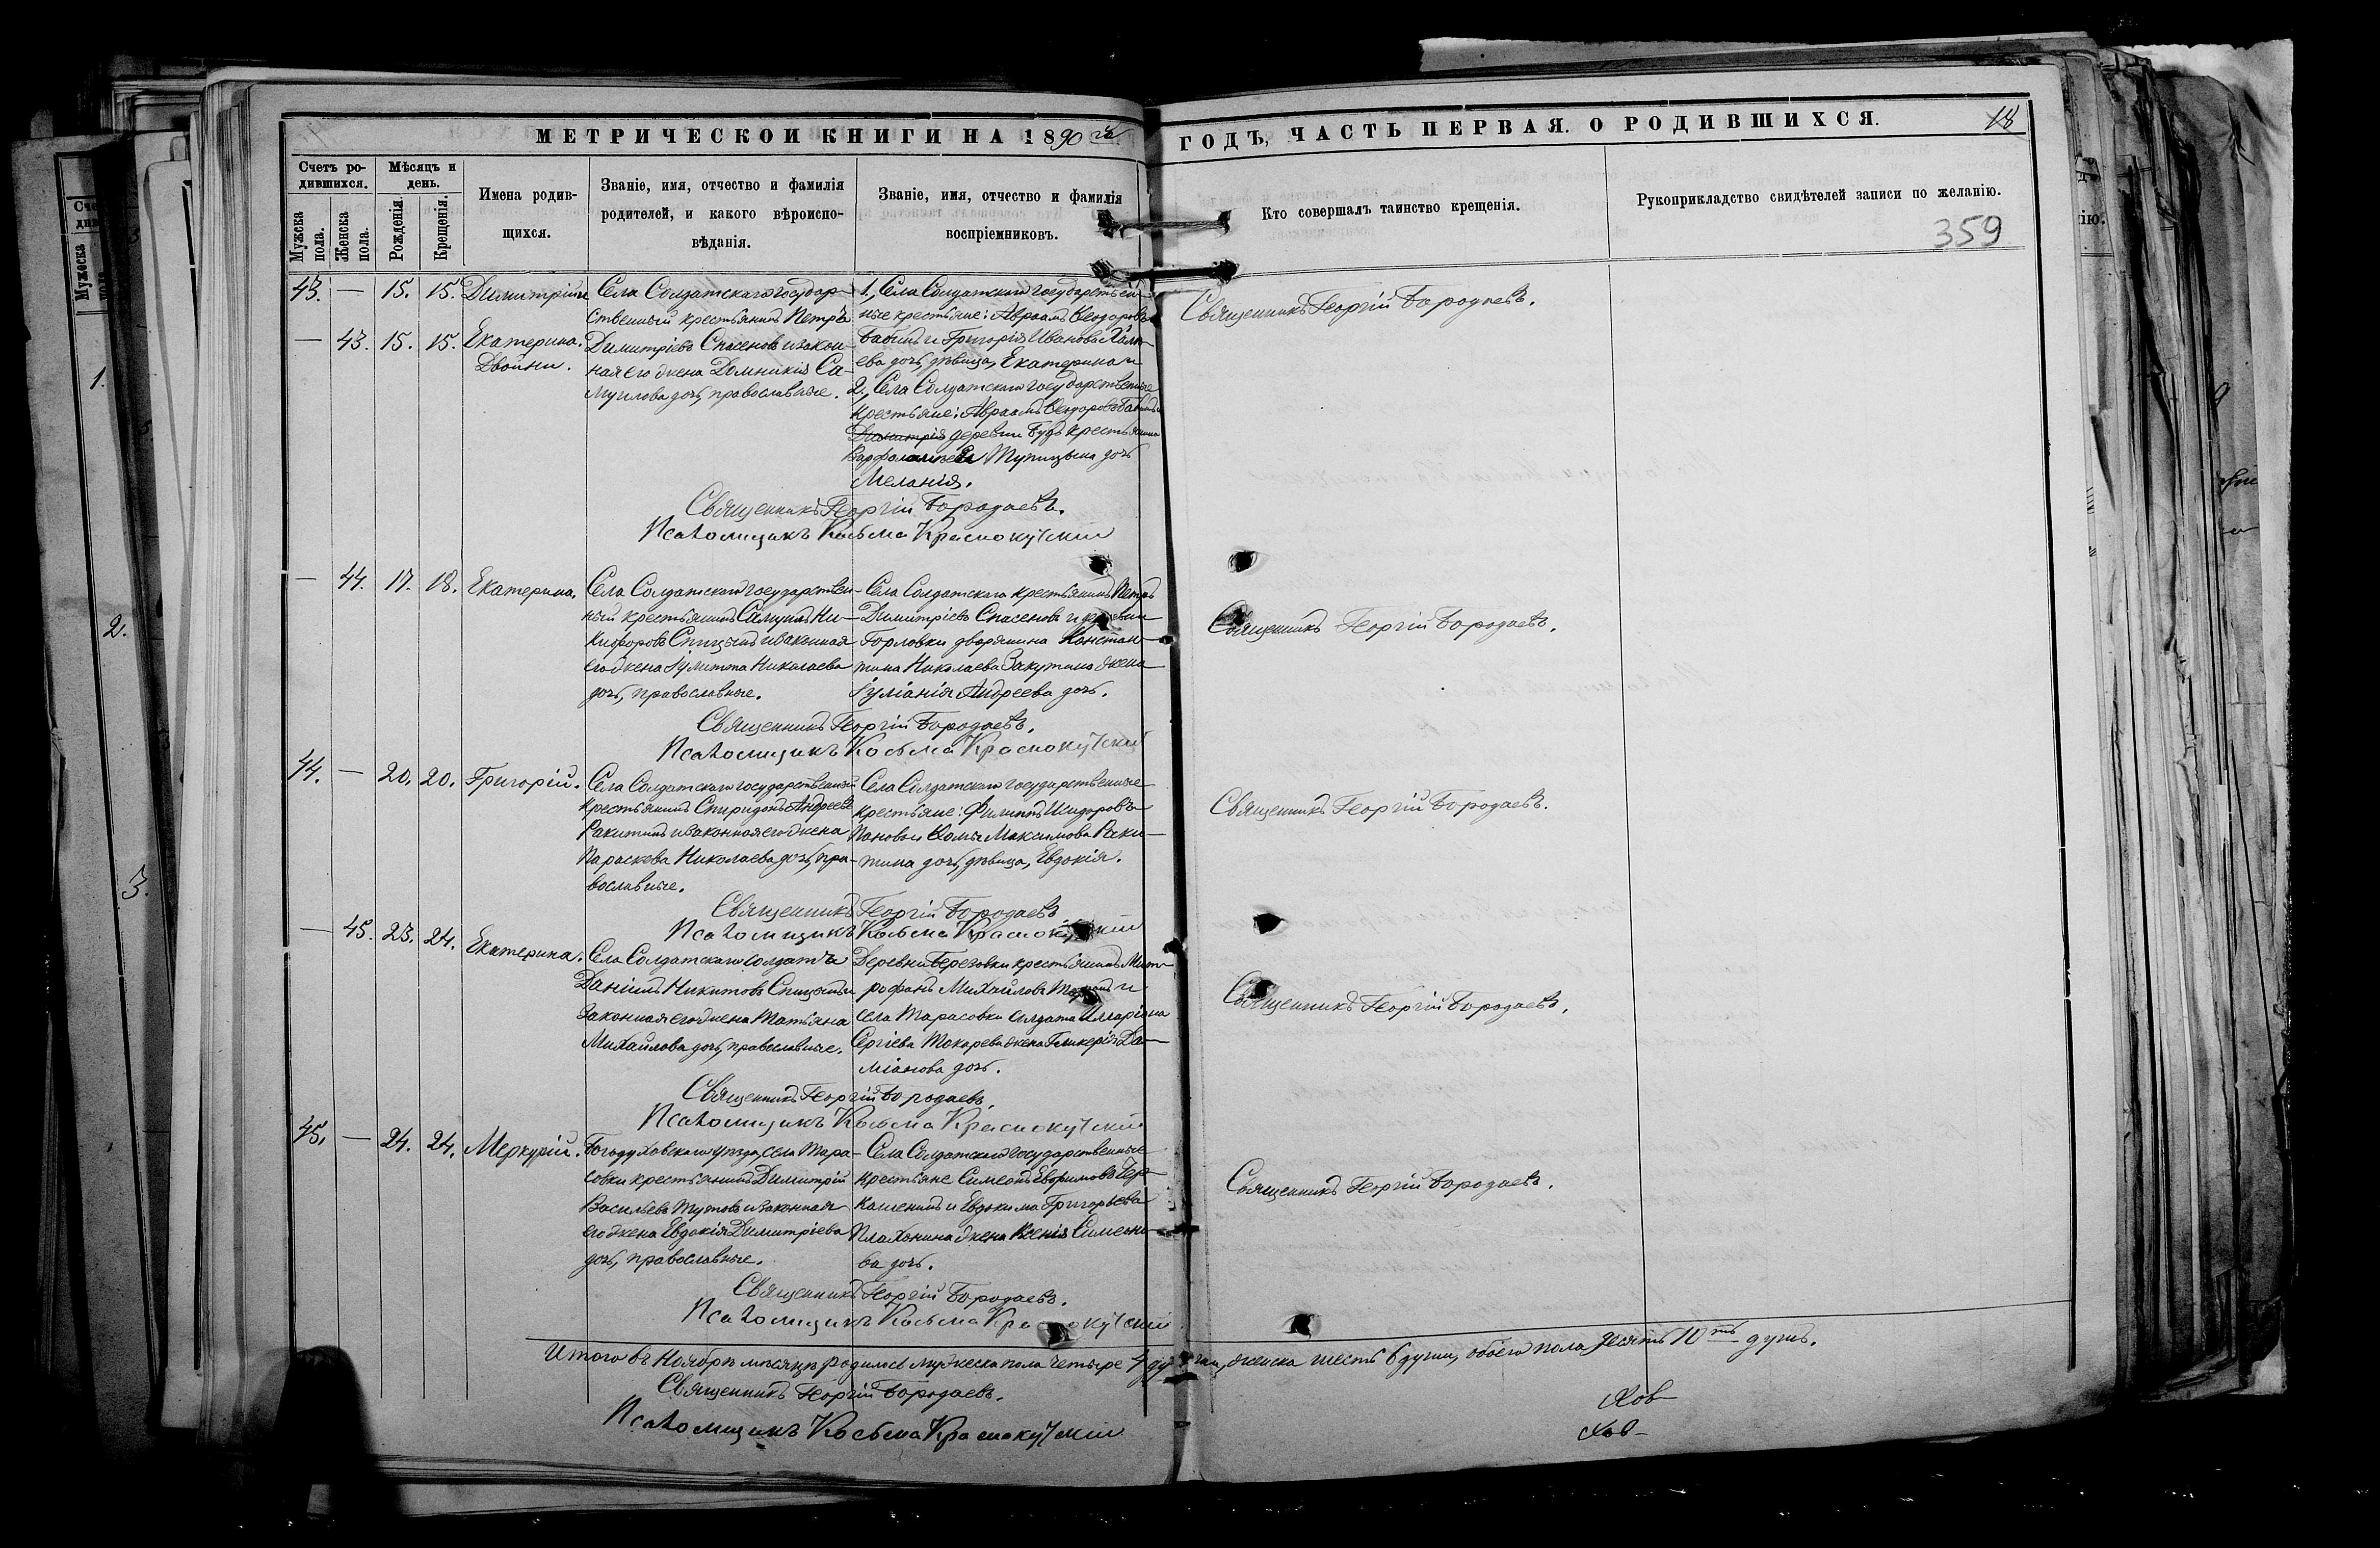 МЕТРИЧЕСКОЙ КНИГИ НА 1890 й ГОДЪ, ЧАСТЬ ПЕРВАЯ. О РОДИВШИХСЯ.
18
Счетъ ро-
дившихся.
Мужеска
пола.
Женска
пола.
Мѣсяцъ и
день.
Рожденія.
Крещенія.
Имена родив-
щихся.
Званіе, имя, отчество и фамилія
родителей, и какого вѣроиспо-
вѣданія.
Званіе, имя, отчество и фамилія
воспріемниковъ.
Кто совершалъ таинство крещенія.
Рукоприкладство свидѣтелей записи по желанію.
359
43. — 15. 15. Димитрій и
— 43. 15. 15. Екатерина.
Двойни.
Села Солдатскаго государ-
ственный крестьянинъ Петръ
Димитріевъ Спасеновъ и закон-
ная его жена Домникія Са-
муилова дочь, православные.
1., Села Солдатскаго государствен-
ные крестьяне: Авраамъ Ѳеодоровъ
Бабинъ и Григорія Иванова
ева дочь, дѣвица, Екатерина и
2., Села Солдатскаго государственные
крестьяне: Авраамъ Ѳеодоровъ Бабинъ и
Димитрія деревни Будъ крестьянина
Варфоломея Тупицына дочь
Меланія.
Священникъ Георгій Бородаевъ.
Священникъ Георгій Бородаевъ.
Псаломщикъ Косьма Краснокутскій
— 44. 17. 18. Екатерина.
Села Солдатскаго государствен-
ный крестьянинъ Самуилъ Ни-
кифоровъ Спицынъ и законная
его жена Іулитта Николаева
дочь, православные.
Села Солдатскаго крестьянинъ Петръ
Димитріевъ Спасеновъ и деревни
Горловки дворянина Констан-
тина Николаева Закутина жена
Іуліанія Андреева дочь.
Священникъ Георгій Бородаевъ.
Священникъ Георгій Бородаевъ.
Псаломщикъ Косьма Краснокутскій
44. — 20. 20. Григорій.
Села Солдатскаго государственный
крестьянинъ Спиридонъ Андреевъ
Ракитинъ и законная его жена
Параскева Николаева дочь, пра-
вославные.
Села Солдатскаго государственные
крестьяне: Филиппъ Исидоровъ
Пановъ и Ѳомы Максимова Раки-
тина дочь, дѣвица, Евдокія.
Священникъ Георгій Бородаевъ.
Священникъ Георгій Бородаевъ
Псаломщикъ Косьма Краснокутскій
— 45. 23. 24. Екатерина.
Села Солдатскаго солдатъ
Даніилъ Никитовъ Спицынъ и
законная его жена Татьяна
Михайлова дочь, православные.
Деревни Березовки крестьянинъ Мит-
рофанъ Михайловъ и
села Тарасовки солдата Иларіона
Сергіева Токарева жена Гликерія Да-
міанова дочь.
Священникъ Георгій Бородаевъ.
Священникъ Георгій Бородаевъ.
Псаломщикъ Косьма Краснокутскій
45. — 24. 24. Меркурій.
Богодуховскаго уѣзда, села Тара-
совки крестьянинъ Димитрій
Васильевъ и законная
его жена Евдокія Димитріева
дочь, православные.
Села Солдатскаго государственные
крестьяне Симеонъ Евфимовъ
и Евдокима Григорьева
Плахонина жена Ксенія Симеоно-
ва дочь.
Священникъ Георгій Бородаевъ.
Священникъ Георгій Бородаевъ.
Псаломщикъ Косьма Краснокутскій
Итого въ Ноябрѣ мѣсяцѣ родилось мужеска пола четыре 4 души, женска шесть 6 души, обоего пола десять 10 ть душъ.
Священникъ Георгій Бородаевъ.
Псаломщикъ Косьма Краснокутскій
1.
2.
3.